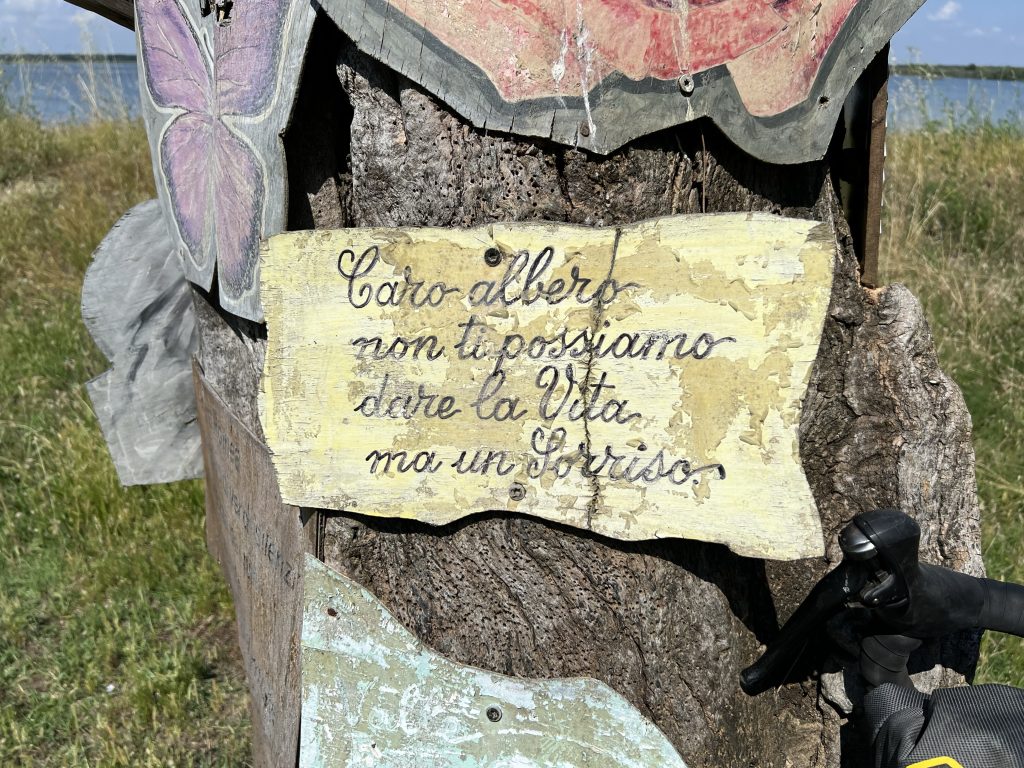 Caro albero
non ti possiamo
dare la Vita
ma un Sorriso.